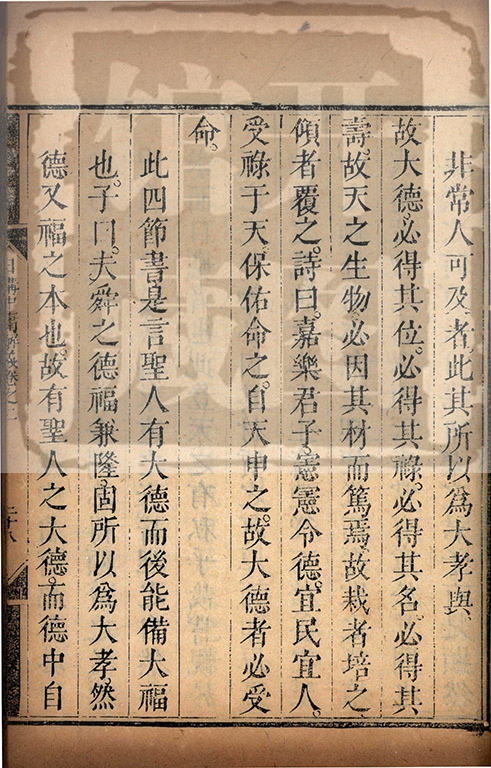 非常人可及者。此其所以爲大孝與
故大德。必得其位。必得其祿。必得其名。必得其
壽。故天之生物。必因其材而篤焉。故栽者培之。
傾者覆之。詩曰。嘉樂君子。憲憲令德。宜民宜人。
受祿于天。保佑命之。自天申之。故大德者必受
命。
此四節書。是言聖人有大德而後能備大福
也。子曰。夫舜之德福兼隆。固所以爲大孝。然
德又福之本也。故有聖人之大德。而德中自
日講
卷之一
二十八